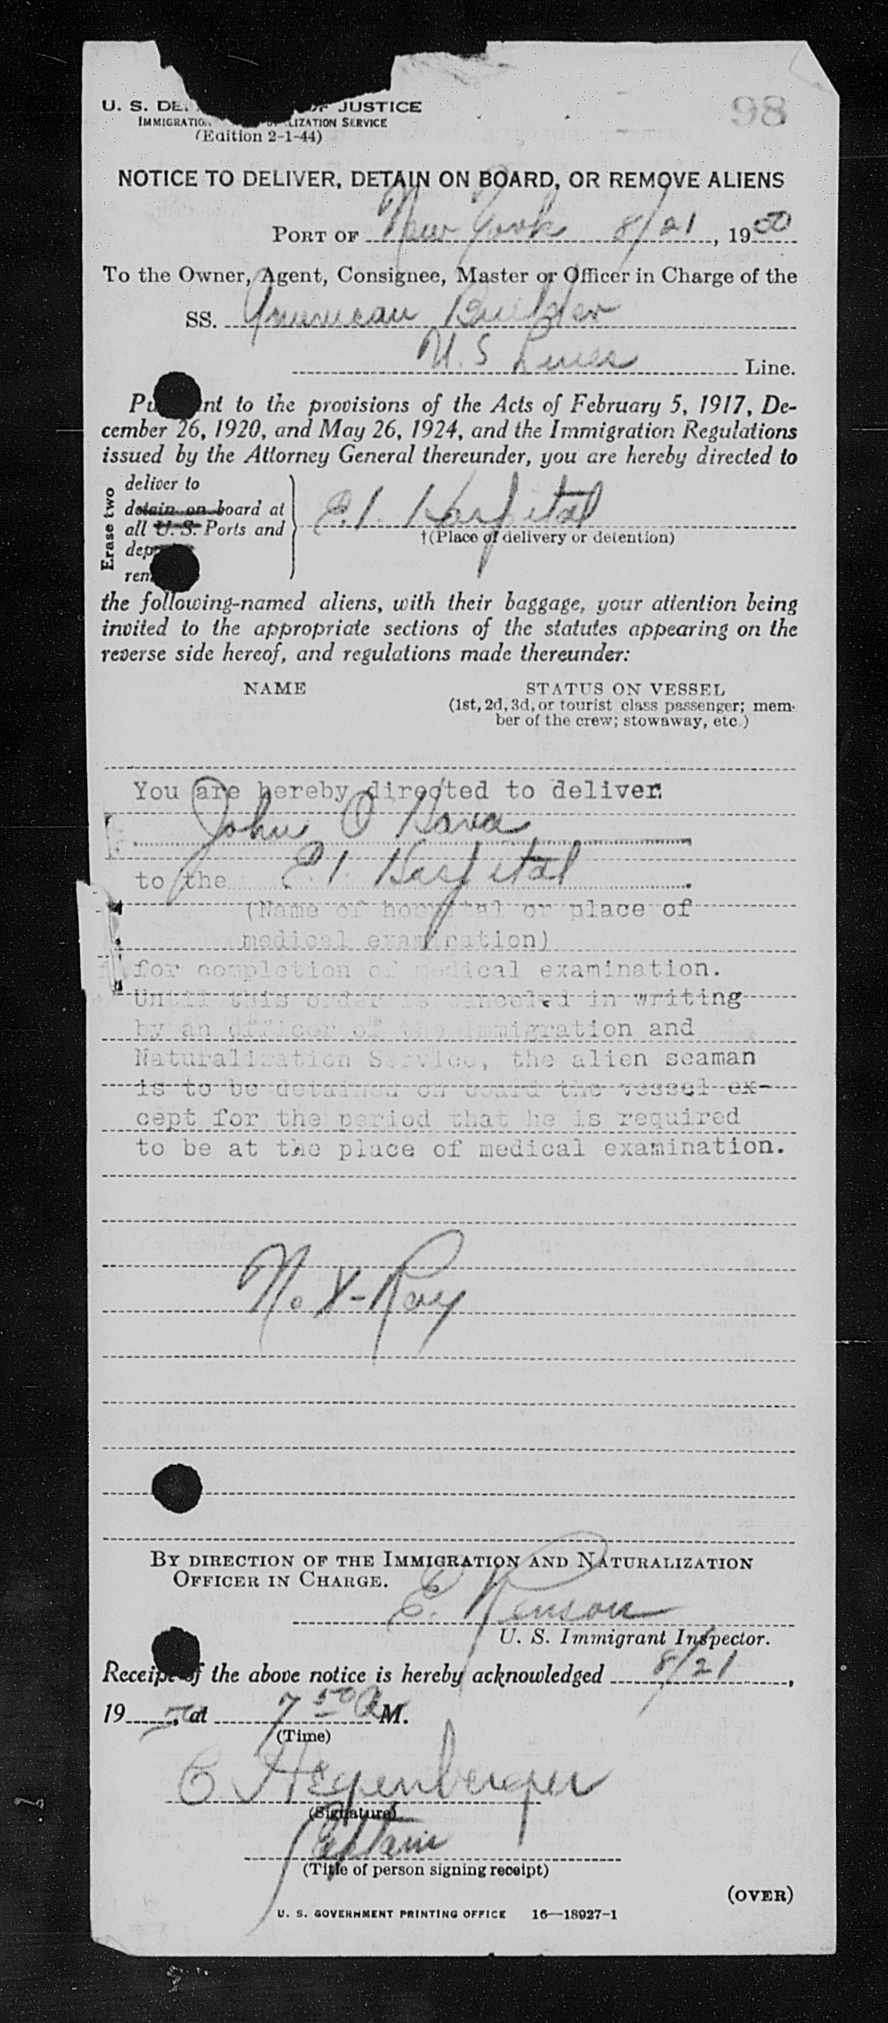 98
U. S. DE OF JUSTICE
IMMIGRATION LIZATION SERVICE
(Edition 2-1-44)
NOTICE TO DELIVER, DETAIN ON BOARD, OR REMOVE ALIENS
PORT OF New York 8/21, 1950
To the Owner, Agent, Consignee, Master or Officer in Charge of the
SS. American Builder
U.S Lines Line.
Pu nt to the provisions of the Acts of February 5, 1917, De-
cember 26, 1920, and May 26, 1924, and the Immigration Regulations
issued by the Attorney General thereunder, you are hereby directed to
Erase two
deliver to
detain on board at
all U. S. Ports and
dep
rem
E.I. Hospital
†(Place of delivery or detention)
the following-named aliens, with their baggage, your attention being
invited to the appropriate sections of the statutes appearing on the
reverse side hereof, and regulations made thereunder:
NAME STATUS ON VESSEL
(1st, 2d, 3d, or tourist class passenger; mem-
ber of the crew; stowaway, etc.)
You are hereby directed to deliver:
John O Hara
to the E.I. Hospital
(Name of hospital or place of
medical examination)
for completion of medical examination.
Until this order is canceled in writing
by an officer of the Immigration and
Naturalization Service, the alien seaman
is to be detained on board the vessel ex-
cept for the period that he is required
to be at the place of medical examination.
X-Ray
BY DIRECTION OF THE IMMIGRATION AND NATURALIZATION
OFFICER IN CHARGE.
E.
U. S. Immigrant Inspector.
Receipt of the above notice is hereby acknowledged 8/21,
1950, at 7 50 A M.
(Time)
C. Hegenberger
(Signature)
Captain
(Title of person signing receipt)
(OVER)
U. S. GOVERNMENT PRINTING OFFICE 16—18927-1